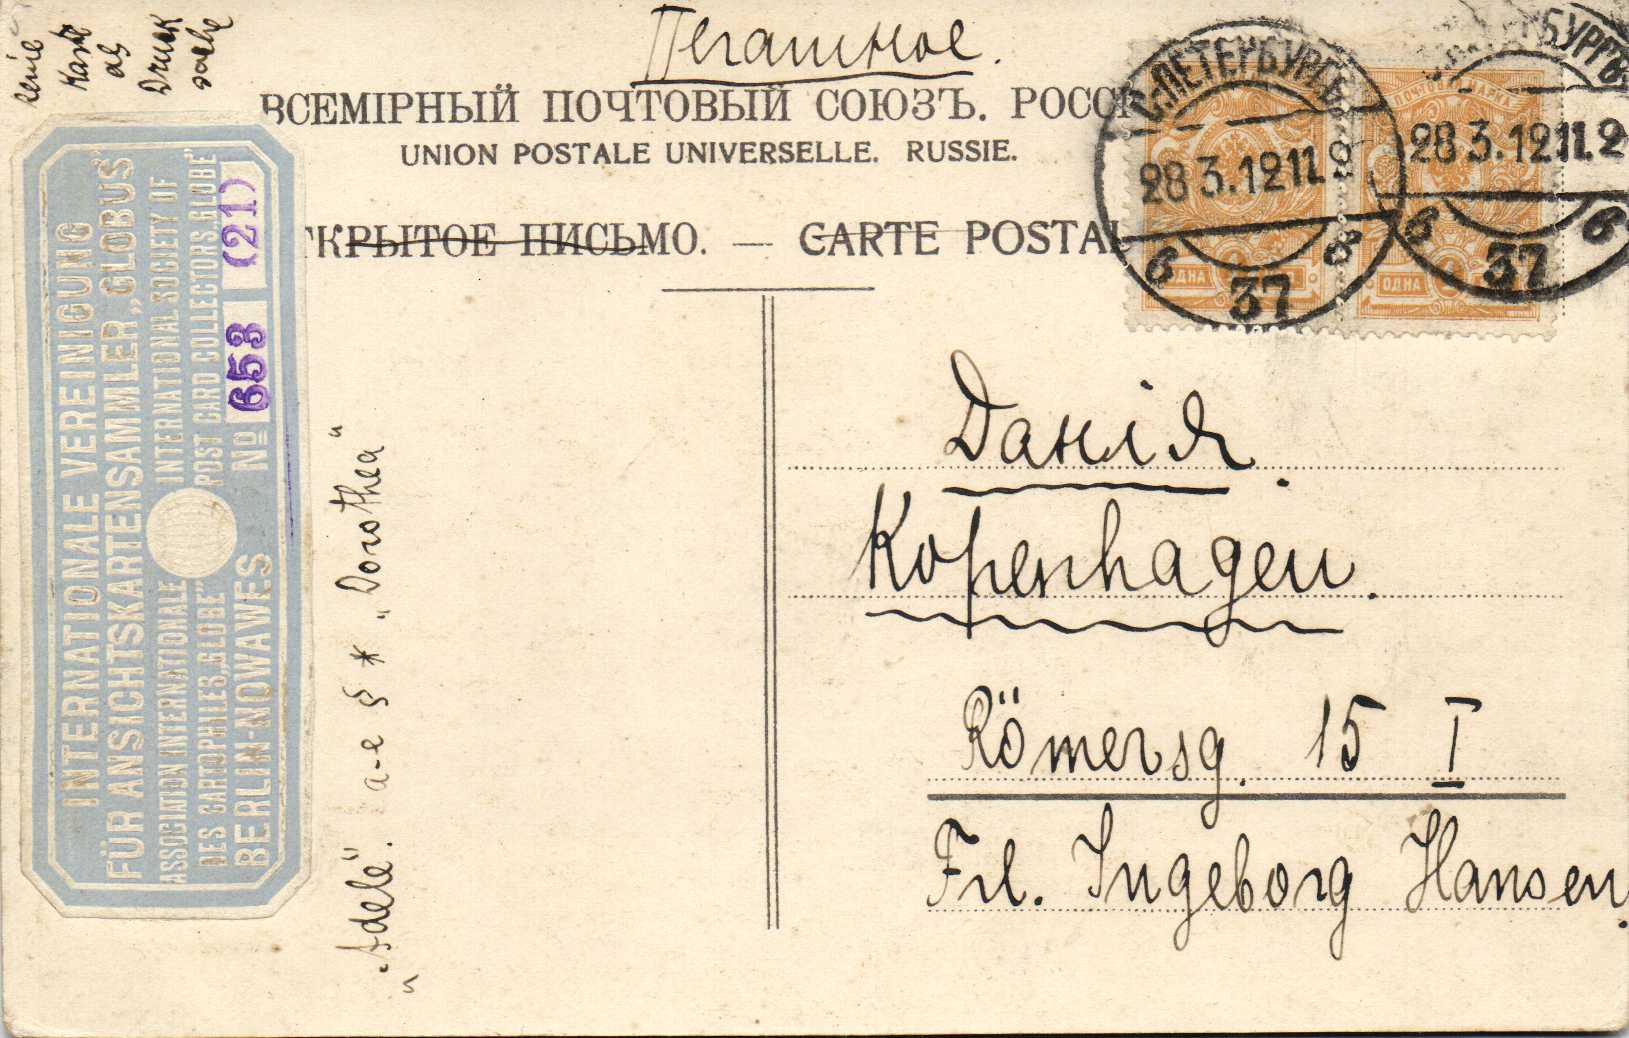 Karte
als
Druck
sache
Печатное.
ВСЕМІРНЫЙ ПОЧТОВЫЙ СОЮЗЪ. РОССІ
UNION POSTALE UNIVERSELLE. RUSSIE.
ТКРЫТОЕ ПИСЬМО. — CARTE POSTAL
С.ПЕТЕРБУРГЪ
28 3.12 11.2
6 37 8
28 3.12 11.2
6 37 6
ОДНА
ОДНА
INTERNATIONALE VEREINIGUNG
FÜR ANSICHTSKARTENSAMMLER „GLOBUS"
ASSOCIATION INTERNATIONALE
DES CARTOPHILES „GLOBE"
INTERNATIONAL SOCIETY OF
POST CARD COLLECTORS „GLOBE"
BERLIN-NOWAWES
No 653 (21)
„Adele". a-e § * „Dorothea"
Данія.
Kopenhagen.
Römersg. 15 I
Frl. Ingeborg Hansen.